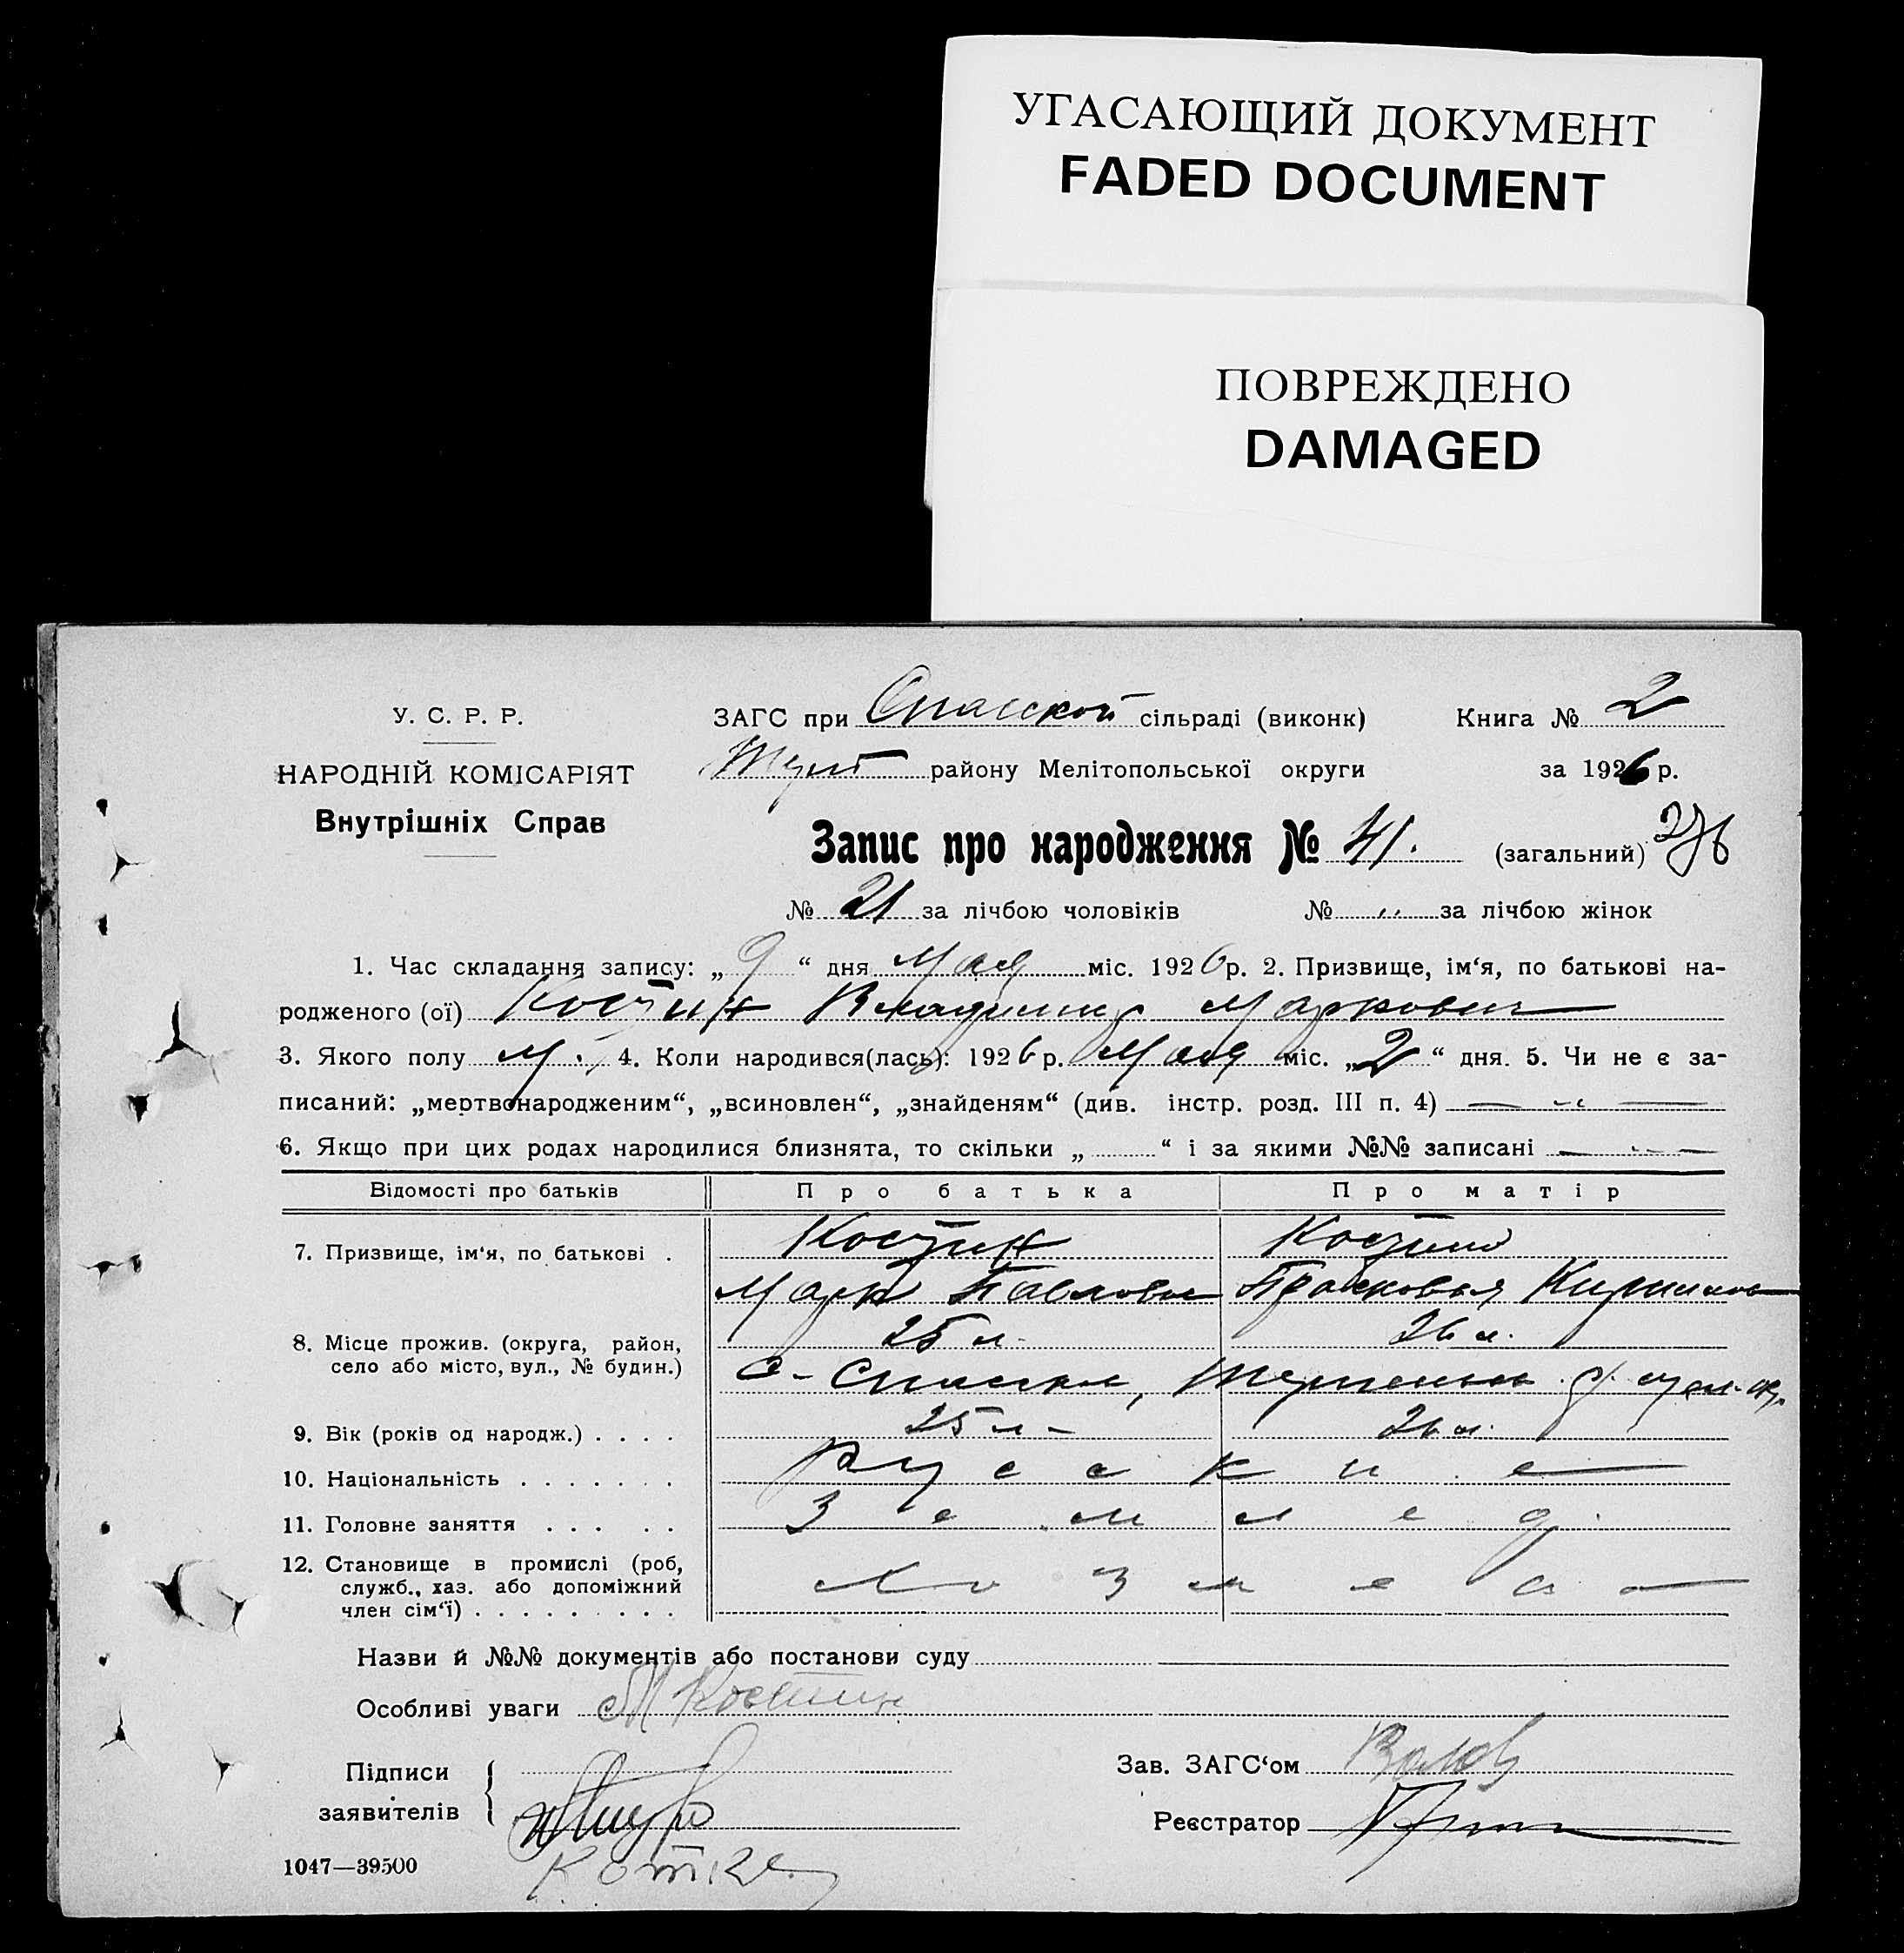 УГАСАЮЩИЙ ДОКУМЕНТ
FADED DOCUMENT
ПОВРЕЖДЕНО
DAMAGED
У. С. Р. Р.
НАРОДНІЙ КОМІСАРІЯТ
Внутрішніх Справ
ЗАГС при Спасской сільраді (виконк) Книга № 2
району Мелітопольської округи за 1926 р.
Запис про народження № 41. (загальний)
№ 21 за лічбою чоловіків № за лічбою жінок
1. Час складання запису: „9“ дня Мая міс. 1926 р. 2. Призвище, ім‘я, по батькові на-
родженого (ої) Костин Владимир Маркович
3. Якого полу М. 4. Коли народився(лась): 1926 р. Мая міс. „2“ дня. 5. Чи не є за-
писаний: „мертвонародженим“, „всиновлен“, „знайденям“ (див. інстр. розд. III п. 4)
6. Якщо при цих родах народилися близнята, то скільки „ “ і за якими №№ записані
Відомості про батьків Про батька Про матір
7. Призвище, ім‘я, по батькові . Костин Костина
Марк Павлович Прасковья
25 л. 26 л.
8. Місце прожив. (округа, район,
село або місто, вул., № будин.)
С-Спасское,
9. Вік (років од народж.) . . . . 25 л- 26 л.
10. Національність . . . . . . . Русские
11. Головне заняття . . . . . Землед.
12. Становище в промислі (роб,
служб., хаз. або допоміжний
член сім‘ї) . . . . . . . . . Хозяева
Назви й №№ документів або постанови суду
Особливі уваги М Костин
Підписи
заявителів
Зав. ЗАГС‘ом
Реєстратор
1047—39500